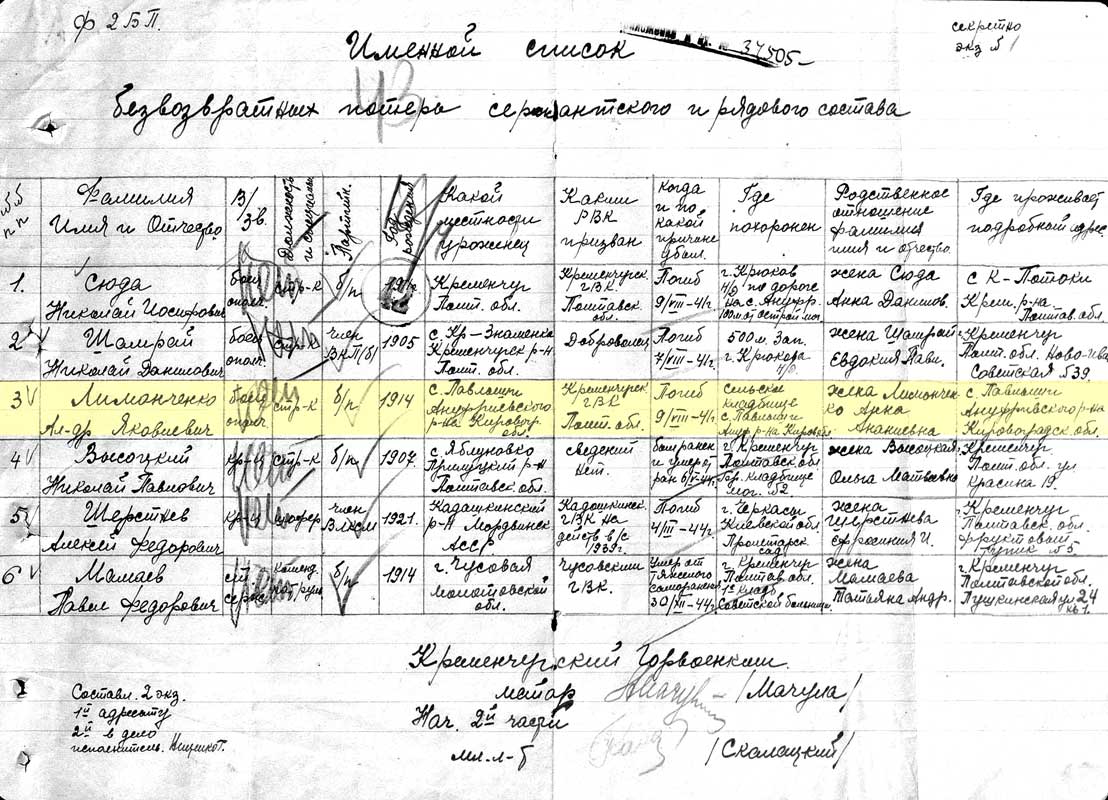 Ф 2БП.
секретно
экз №1
Именной список
37505
безвозвратных потерь сержантского и рядового состава
№№ п/п | Фамилия Имя и Отчество | В/зв. | Должность и специальн. | Партийн. | Год рождения | Какой местности уроженец | Каким РВК призван | когда и по какой причине убыл. | Где похоронен | Родственное отношение фамилия имя и отчество. | Где проживает подробный адрес
1. | Сюда Николай Иосифович | боец ополч. | стр-к | б/п | Кременчуг Полт. обл. | Кременчугск. ГВК Полтавск. обл. | Погиб 9/VIII-41г | г. Крюков по дороге на с. Ануфр. | жена Сюда Анна Данилов. | с К-Потоки Крем. р-на Полтав. обл.
2 | Шамрай Николай Данилович | боец ополч. | член ВКП(б) | 1905 | с. Кр-Знаменка Кременчугск р-н Полт. обл. | Доброволец | Погиб 7/VIII-41г | 500 м. Зап. г. Крюкова | жена Шамрай Евдокия Павл. | г. Кременчуг Полт. обл. Советская №39.
3 | Лимонченко Ал-др Яковлевич | боец ополч | стр-к | б/п | 1914 | с. Павлыши Ануфриевского р-на Кировогр. обл. | Кременчугск ГВК Полт. обл. | Погиб 9/VIII-41г. | сельское кладбище с. Павлыши Ануф р-на Кировог. | жена Лимонченко Анна Ананиевна | с. Павлыши Ануфриевского р-на Кировоградск. обл.
4 | Высоцкий Николай Павлович | кр-ц | стр-к | б/п | 1907. | с. Яблуновко Прилуцкий р-н Полтавск. обл. | сведений нет. | был ранен и умер от ран | г. Кременчуг Полтавск. обл Гор. кладбище мог. №2 | жена Высоцкая Ольга Матвеевна | г. Кременчуг Полт. обл. ул Красина 19.
5 | Шерстнев Алексей Федорович | кр-ц | шофер | член ВЛКСМ | 1921. | Кадошкинский р-н Мордвинск АССР | Кадошкинск. ГВК на действ в/с 1939г. | Погиб 4/III-44г. | г. Черкасы Киевской обл. Пролетарск сад | жена Шерстнева Ефросиния И. | г. Кременчуг Полтавск. обл. Фруктовый тупик №5
6 | Мамаев Павел Федорович | ст серж | Коменд. | б/п | 1914 | г. Чусовая Молотовской обл. | Чусовским ГВК. | умер от тяжелого саморанения 30/XII-44г | г. Кременчуг Полтав. обл. 1е кладб Советской больницы | жена Мамаева Татьяна Андр. | г. Кременчуг Полтавской обл. Пушкинская ул 24 кв 1.
Кременчугский Горвоенком
майор /Мачула/
Нач. 2й части
мл. л-т /Скалацкий/
Составл. 2 экз.
1й адресату
2й в дело
исполнитель.